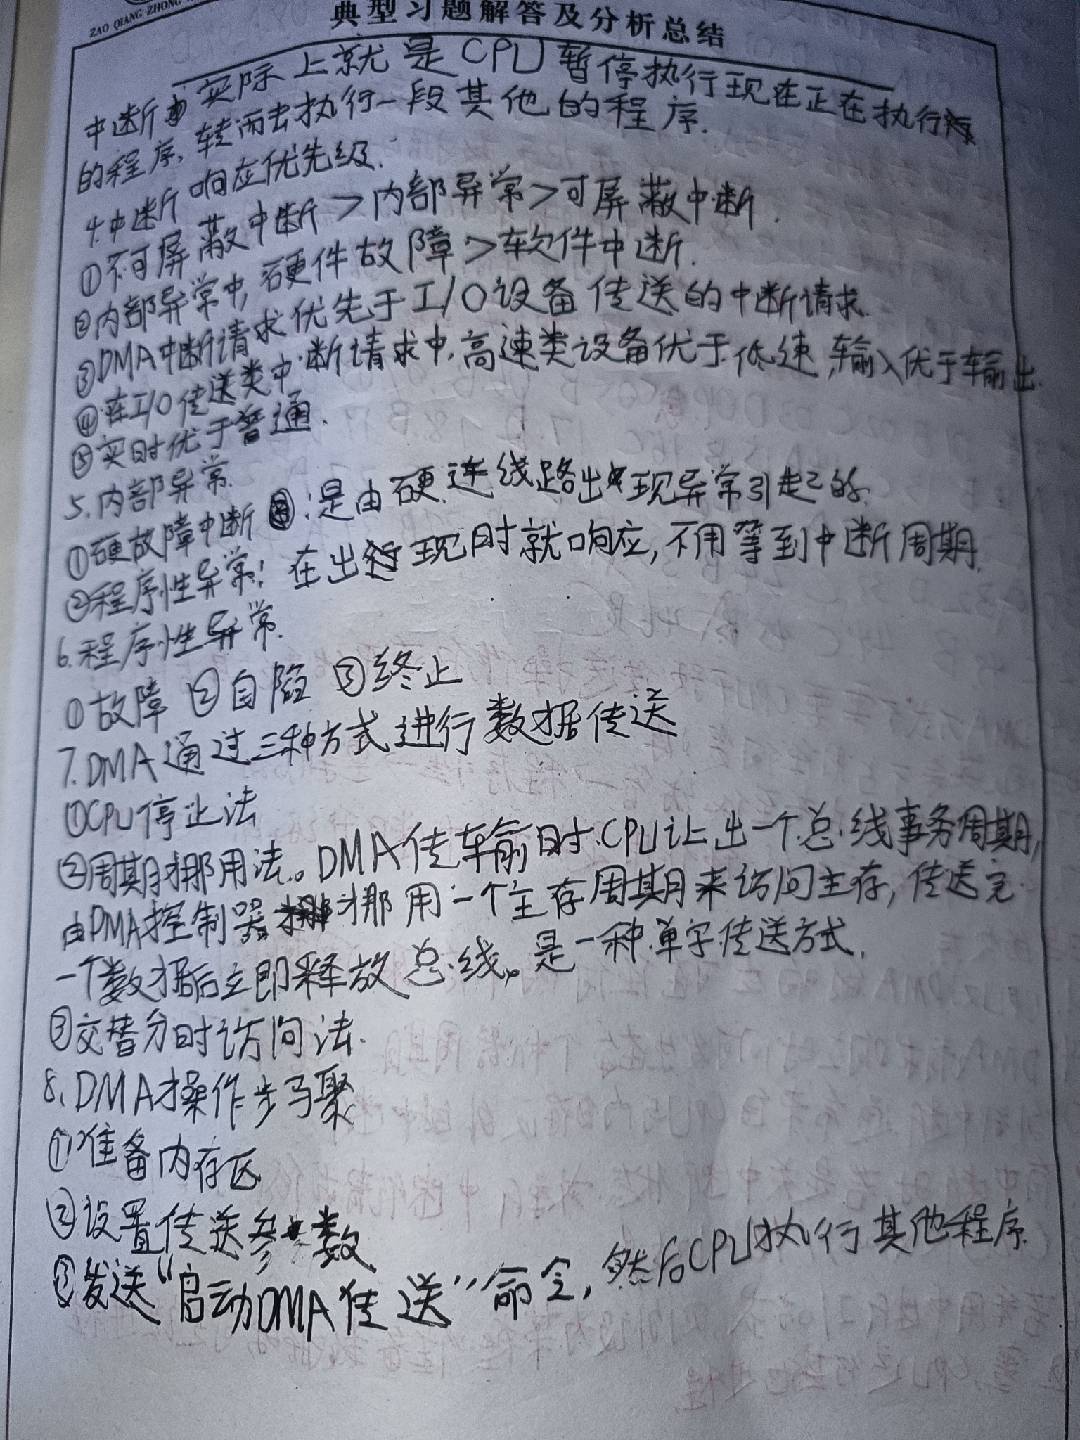 ZAO QIANG ZHONG
典型习题解答及分析总结
中断实际上就是CPU暂停执行现在正在执行
的程序,转而去执行一段其他的程序.
4.中断响应优先级.
①不可屏蔽中断>内部异常>可屏蔽中断.
②内部异常中,硬件故障>软件中断.
③DMA中断请求优先于I/O设备传送的中断请求.
④在I/O传送类中断请求中,高速类设备优于低速,输入优于输出.
⑤实时优于普通.
5.内部异常.
①硬故障中断:是由硬连线路出现异常引起的.
②程序性异常:在出现时就响应,不用等到中断周期.
6.程序性异常.
①故障 ②自陷 ③终止
7.DMA通过三种方式进行数据传送
①CPU停止法
②周期挪用法。DMA传输时CPU让出一个总线事务周期,
由DMA控制器挪用一个主存周期来访问主存,传送完
一个数据后立即释放总线。是一种单字传送方式.
③交替分时访问法.
8.DMA操作步骤
①准备内存区
②设置传送参数
③发送“启动DMA传送”命令,然后CPU执行其他程序.